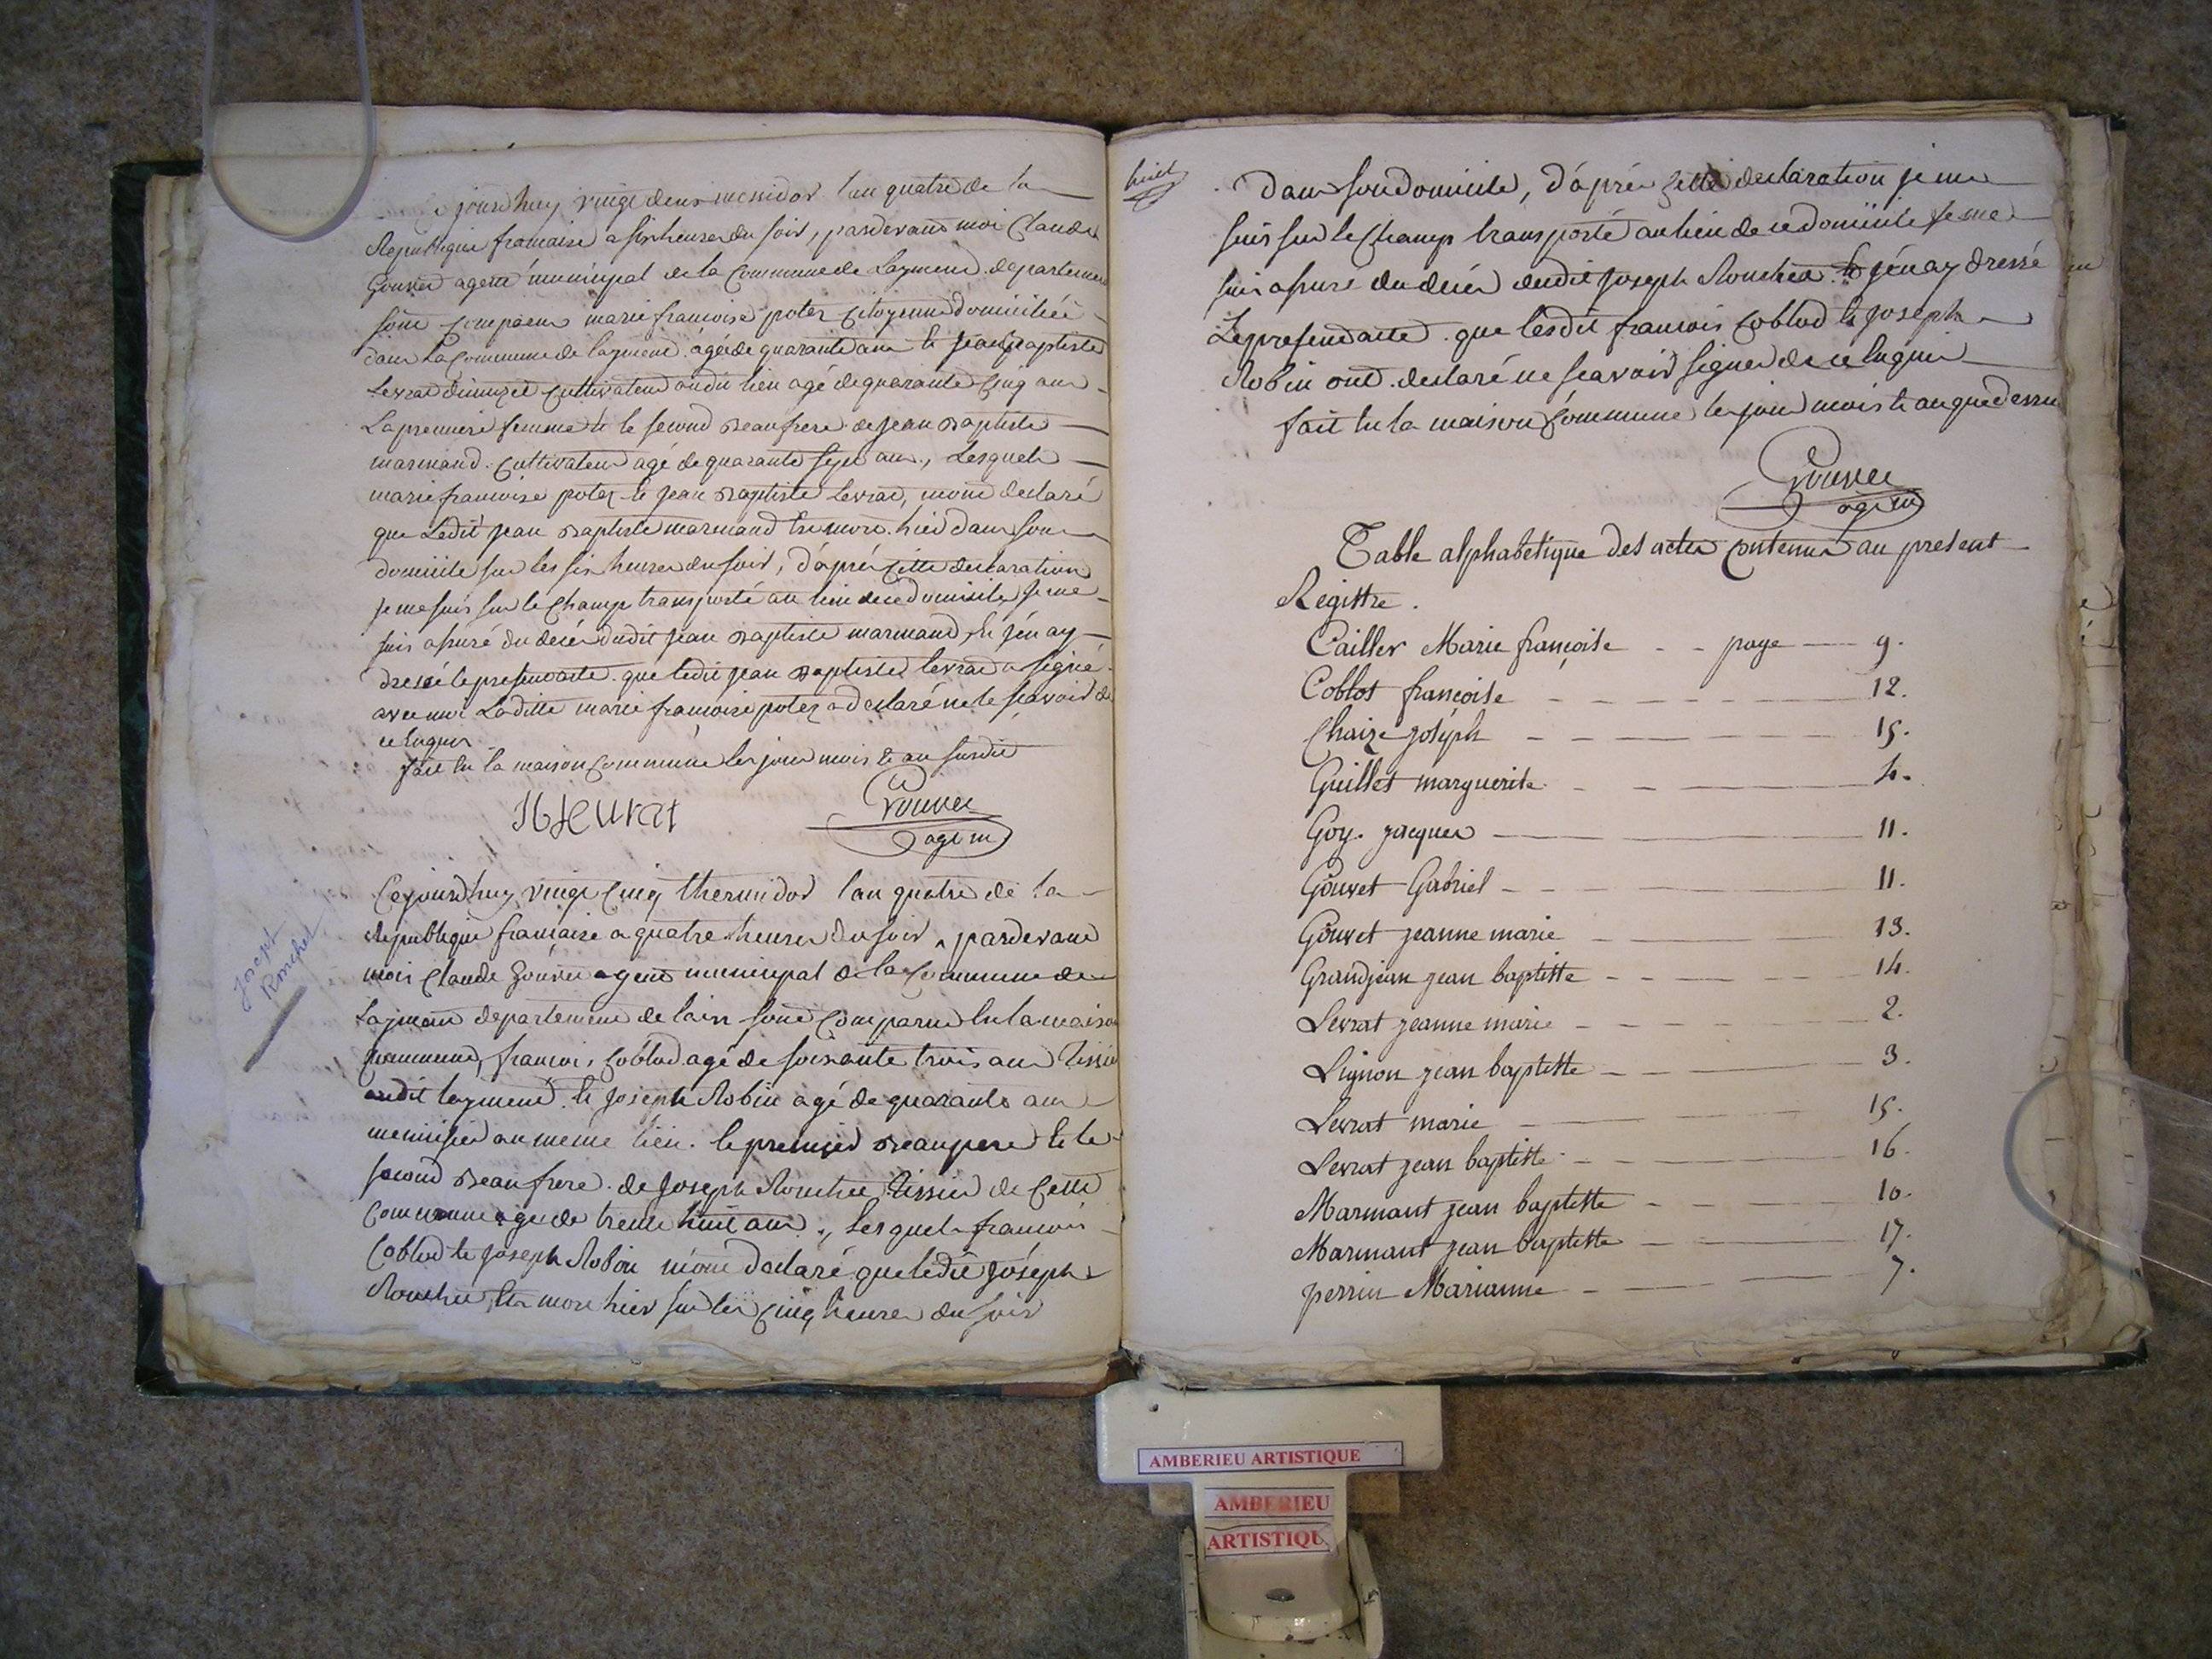 Ce jourd'huy vingt deux messidor l'an quatre de la
Republique francaise a six heures du soir, pardevant moi Claude
Gouvet agent municipal de la Commune de Laymend departement
sont comparus marie francoise potez Citoyenne domiciliée
dans La Commune de layment agée de quarante ans et Jean Baptiste
Levrat cultivateur audit lieu agé de quarante cinq ans
La premiere femme et le second Beaufrere de Jean Baptiste
marmand Cultivateur agé de quarante sept ans, Lesquels
marie francoise potez et Jean Baptiste Levrat, m'ont declaré
que Ledit Jean Baptiste marmand est mort hier dans son
domicile sur les six heures du soir, d'après cette declaration
Je me suis sur le Champ transporté au lieu de ce domicile, Je me
suis assuré du decés dudit Jean Baptiste marmand, et j'en ay
dressé le present acte que ledit Jean Baptiste levrat a signé
avec moi Laditte marie francoise potez a declaré ne le scavoir de
ce Enquis
fait en la maison Commune les jour mois & an susdit
JBLeurat
Gouvet
age m
Cejourd'huy vingt Cinq thermidor l'an quatre de la
Republique francaise a quatre heures du soir, pardevant
moi Claude Gouvet agent municipal de la Commune de
Layment departement de l'ain sont Comparus En la maison
Commune, francois Coblod agé de soixante trois ans Tissier
audit layment et Joseph Robin agé de quarante ans
menuisier au meme lieu. le premier Beaupere et le
second Beaufrere de Joseph Rouchet, Tissier de Cette
Commune agé de trente huit ans, Lesquels francois
Coblod et Joseph Robin m'ont declaré que ledit Joseph
Rouchet, Est mort hier sur les Cinq heures du soir
Joseph
Ronchet
huit
Dans son domicile, D'après Cette declaration je me
suis sur le Champ transporté au lieu de ce domicile je me
suis assuré du decés dudit Joseph Rouchet et j'en ay dressé
Le present acte que lesdit francois Coblod et Joseph
Robin ont declaré ne scavoir signer de ce Enquis
fait En la maison Commune les jour mois et an que dessus
Gouvet
age m
Table alphabetique des actes contenus au present
Registre.
Cailler Marie françoise - - page — 9.
Coblot françoise — 12.
Chaize joseph — 15.
Guillet marguerite — 4.
Goy jacques — 11.
Gouvet Gabriel — 11.
Gouvet jeanne marie — 13.
Grandjean jean baptiste — 14.
Levrat jeanne marie — 2.
Lignon jean baptiste — 3.
Levrat marie — 15.
Levrat jean baptiste — 16.
Marmant jean baptiste — 10.
Marmant jean baptiste — 17.
perrin Marianne — 7.
AMBERIEU ARTISTIQUE
AMBERIEU
ARTISTIQU